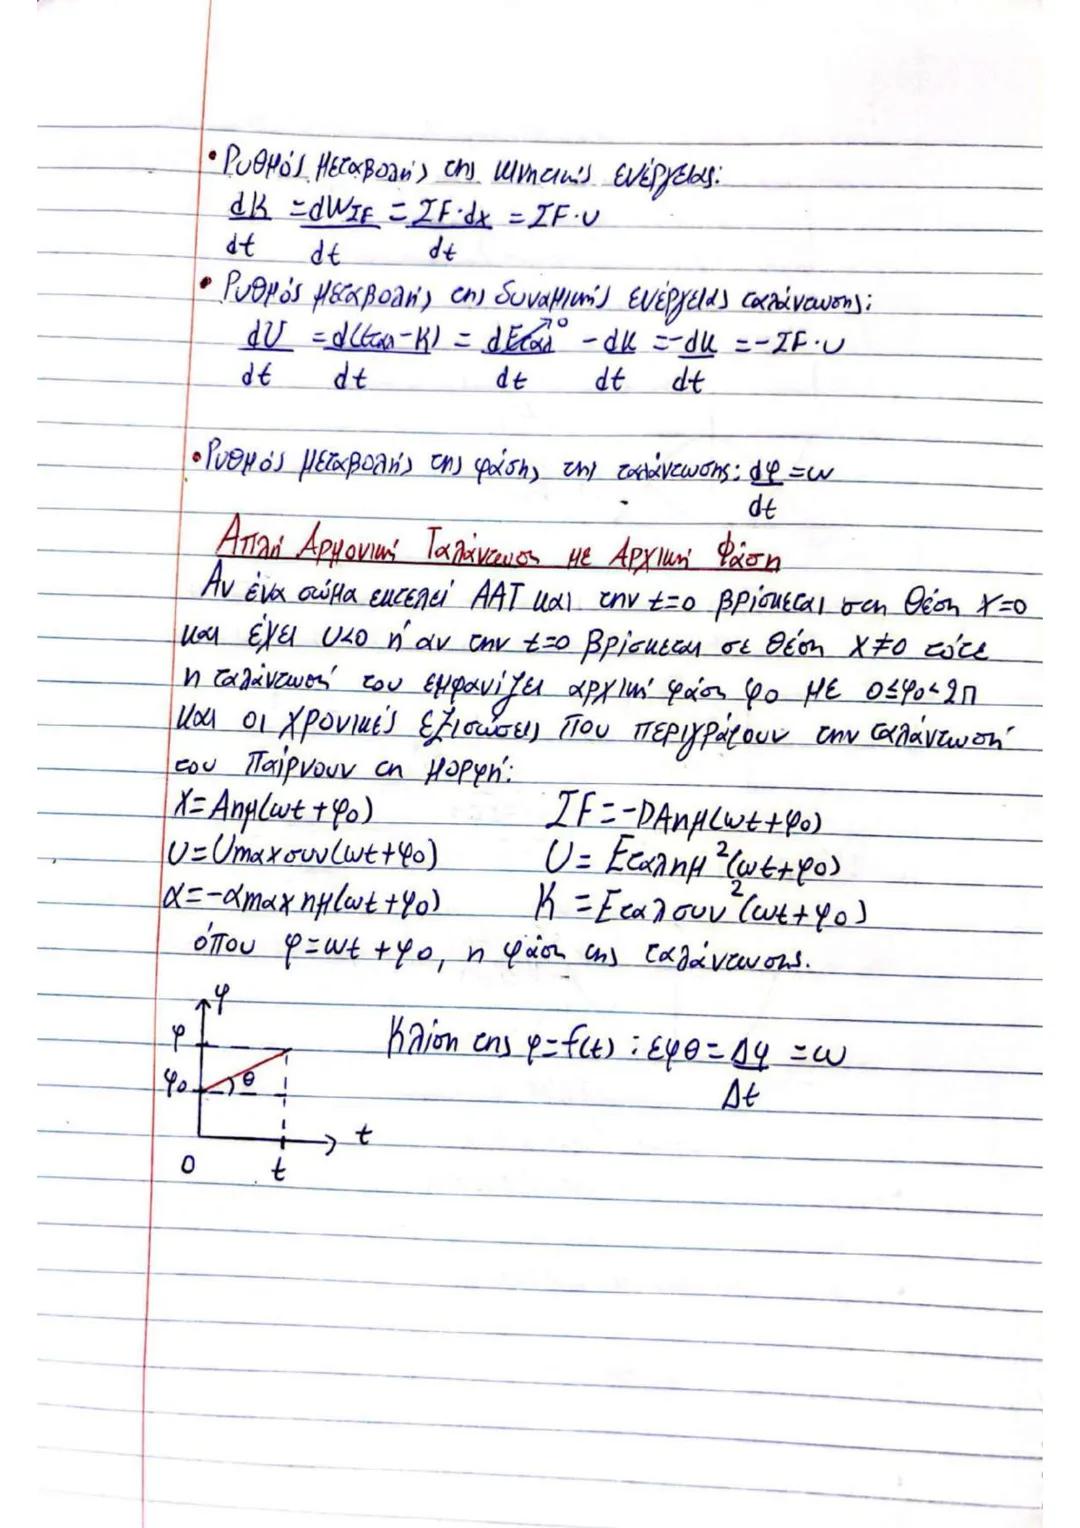 • Ρυθμός μεταβολής της κινητικής ενέργειας:
dK/dt = dWΣF/dt = ΣF·dx/dt = ΣF·υ
• Ρυθμός μεταβολής της δυναμικής ενέργειας ταλάντωσης:
dU/dt = d(Εταλ-K)/dt = dΕταλ/dt →0 - dK/dt = -dK/dt = -ΣF·υ
• Ρυθμός μεταβολής της φάσης της ταλάντωσης: dφ/dt = ω
Απλή Αρμονική Ταλάντωση με Αρχική Φάση
Αν ένα σώμα εκτελεί ΑΑΤ και την t=0 βρίσκεται στη θέση x=0
και έχει υ<0 ή αν την t=0 βρίσκεται σε θέση x≠0 τότε
η ταλάντωσή του εμφανίζει αρχική φάση φ0 με 0≤φ0<2π
και οι χρονικές εξισώσεις που περιγράφουν την ταλάντωσή
του παίρνουν τη μορφή:
x=Αημ(ωt+φ0) ΣF=-DAημ(ωt+φ0)
υ=υmaxσυν(ωt+φ0) U=Εταλημ²(ωt+φ0)
α=-αmaxημ(ωt+φ0) K=Εταλσυν²(ωt+φ0)
όπου φ=ωt+φ0, η φάση της ταλάντωσης.
φ
φ Κλίση της φ=f(t): εφθ=Δφ/Δt=ω
φ0 θ
t
0 t